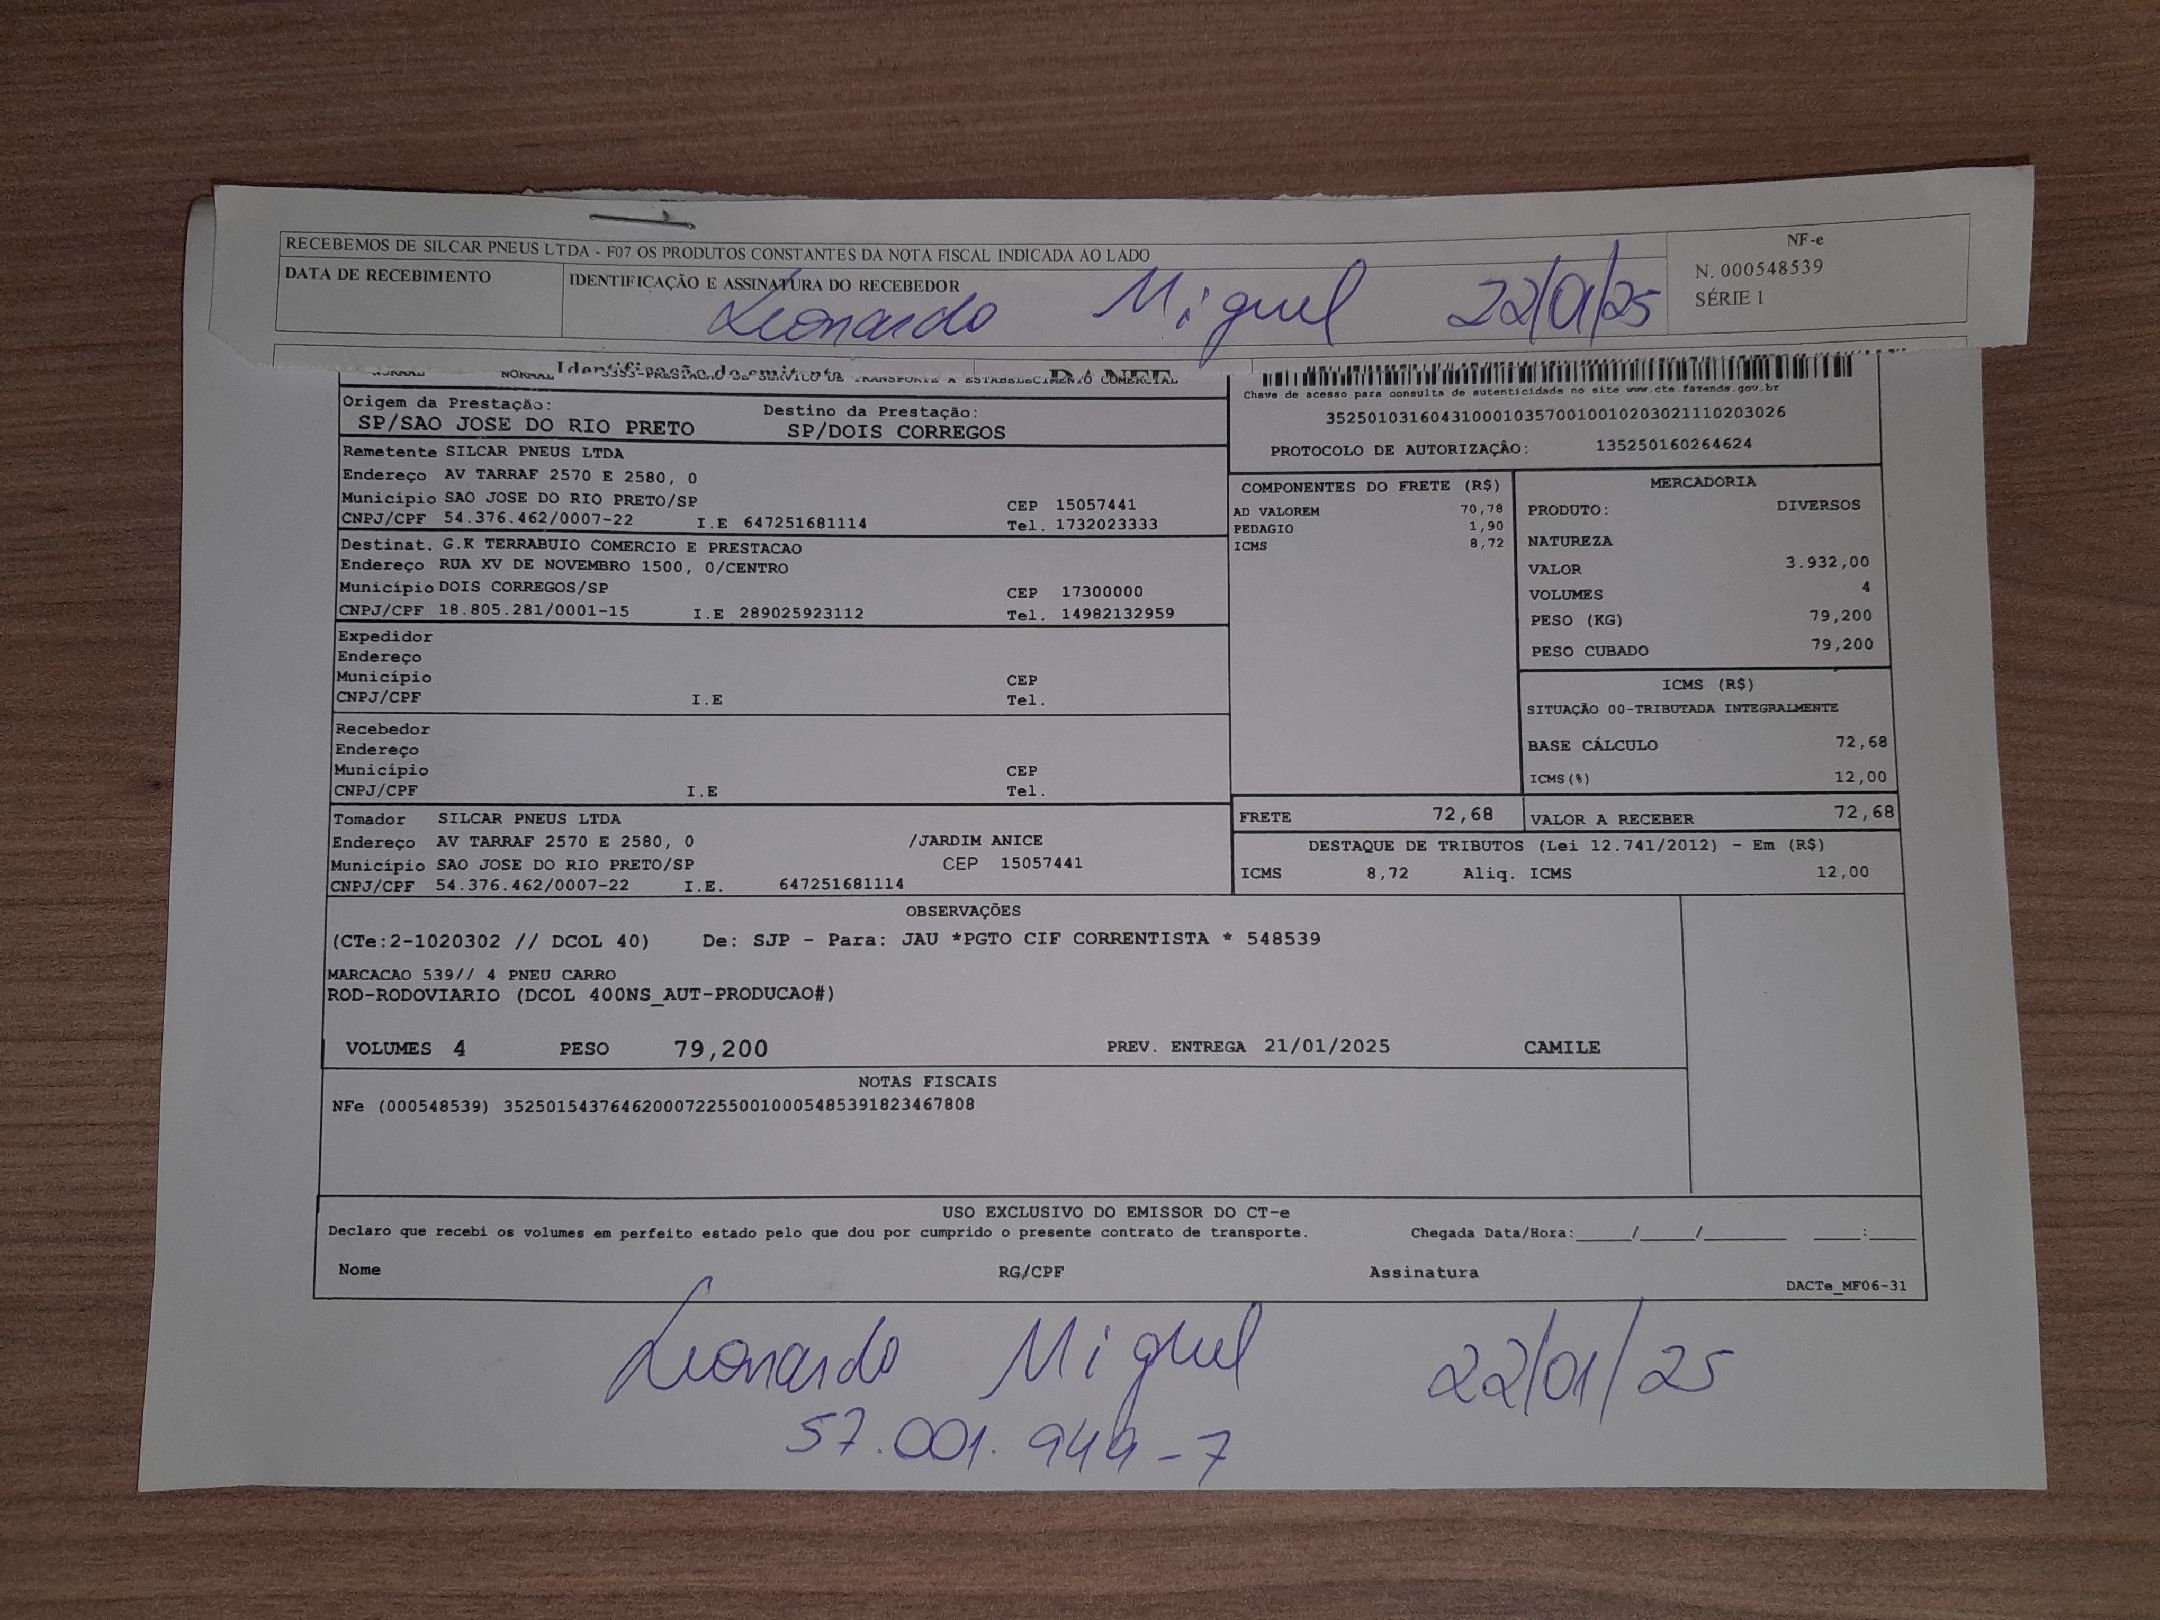 RECEBEMOS DE SILCAR PNEUS LTDA - F07 OS PRODUTOS CONSTANTES DA NOTA FISCAL INDICADA AO LADO
NF-e
N. 000548539
SÉRIE 1
DATA DE RECEBIMENTO
IDENTIFICAÇÃO E ASSINATURA DO RECEBEDOR
Leonardo Miguel 22/01/25
Identificação do emitente
DANFE
NORMAL NORMAL 5353-PRESTACAO DE SERVICO DE TRANSPORTE A ESTABELECIMENTO COMERCIAL
Chave de acesso para consulta de autenticidade no site www.cte.fazenda.gov.br
35250103160431000103570010010203021110203026
PROTOCOLO DE AUTORIZAÇÂO: 135250160264624
Origem da Prestação: Destino da Prestação:
SP/SAO JOSE DO RIO PRETO SP/DOIS CORREGOS
Remetente SILCAR PNEUS LTDA
Endereço AV TARRAF 2570 E 2580, 0
Município SAO JOSE DO RIO PRETO/SP CEP 15057441
CNPJ/CPF 54.376.462/0007-22 I.E 647251681114 Tel. 1732023333
Destinat. G.K TERRABUIO COMERCIO E PRESTACAO
Endereço RUA XV DE NOVEMBRO 1500, 0/CENTRO
Município DOIS CORREGOS/SP CEP 17300000
CNPJ/CPF 18.805.281/0001-15 I.E 289025923112 Tel. 14982132959
Expedidor
Endereço
Município CEP
CNPJ/CPF I.E Tel.
Recebedor
Endereço
Município CEP
CNPJ/CPF I.E Tel.
Tomador SILCAR PNEUS LTDA
Endereço AV TARRAF 2570 E 2580, 0 /JARDIM ANICE
Município SAO JOSE DO RIO PRETO/SP CEP 15057441
CNPJ/CPF 54.376.462/0007-22 I.E. 647251681114
COMPONENTES DO FRETE (R$)
AD VALOREM 70,78
PEDAGIO 1,90
ICMS 8,72
MERCADORIA
PRODUTO: DIVERSOS
NATUREZA
VALOR 3.932,00
VOLUMES 4
PESO (KG) 79,200
PESO CUBADO 79,200
ICMS (R$)
SITUAÇÃO 00-TRIBUTADA INTEGRALMENTE
BASE CÁLCULO 72,68
ICMS(%) 12,00
FRETE 72,68 VALOR A RECEBER 72,68
DESTAQUE DE TRIBUTOS (Lei 12.741/2012) - Em (R$)
ICMS 8,72 Aliq. ICMS 12,00
OBSERVAÇÕES
(CTe:2-1020302 // DCOL 40) De: SJP - Para: JAU *PGTO CIF CORRENTISTA * 548539
MARCACAO 539// 4 PNEU CARRO
ROD-RODOVIARIO (DCOL 400NS_AUT-PRODUCAO#)
VOLUMES 4 PESO 79,200 PREV. ENTREGA 21/01/2025 CAMILE
NOTAS FISCAIS
NFe (000548539) 35250154376462000722550010005485391823467808
USO EXCLUSIVO DO EMISSOR DO CT-e
Declaro que recebi os volumes em perfeito estado pelo que dou por cumprido o presente contrato de transporte. Chegada Data/Hora:_____/_____/_______ ____:____
Nome RG/CPF Assinatura
DACTe_MF06-31
Leonardo Miguel 22/01/25
57.001.949-7